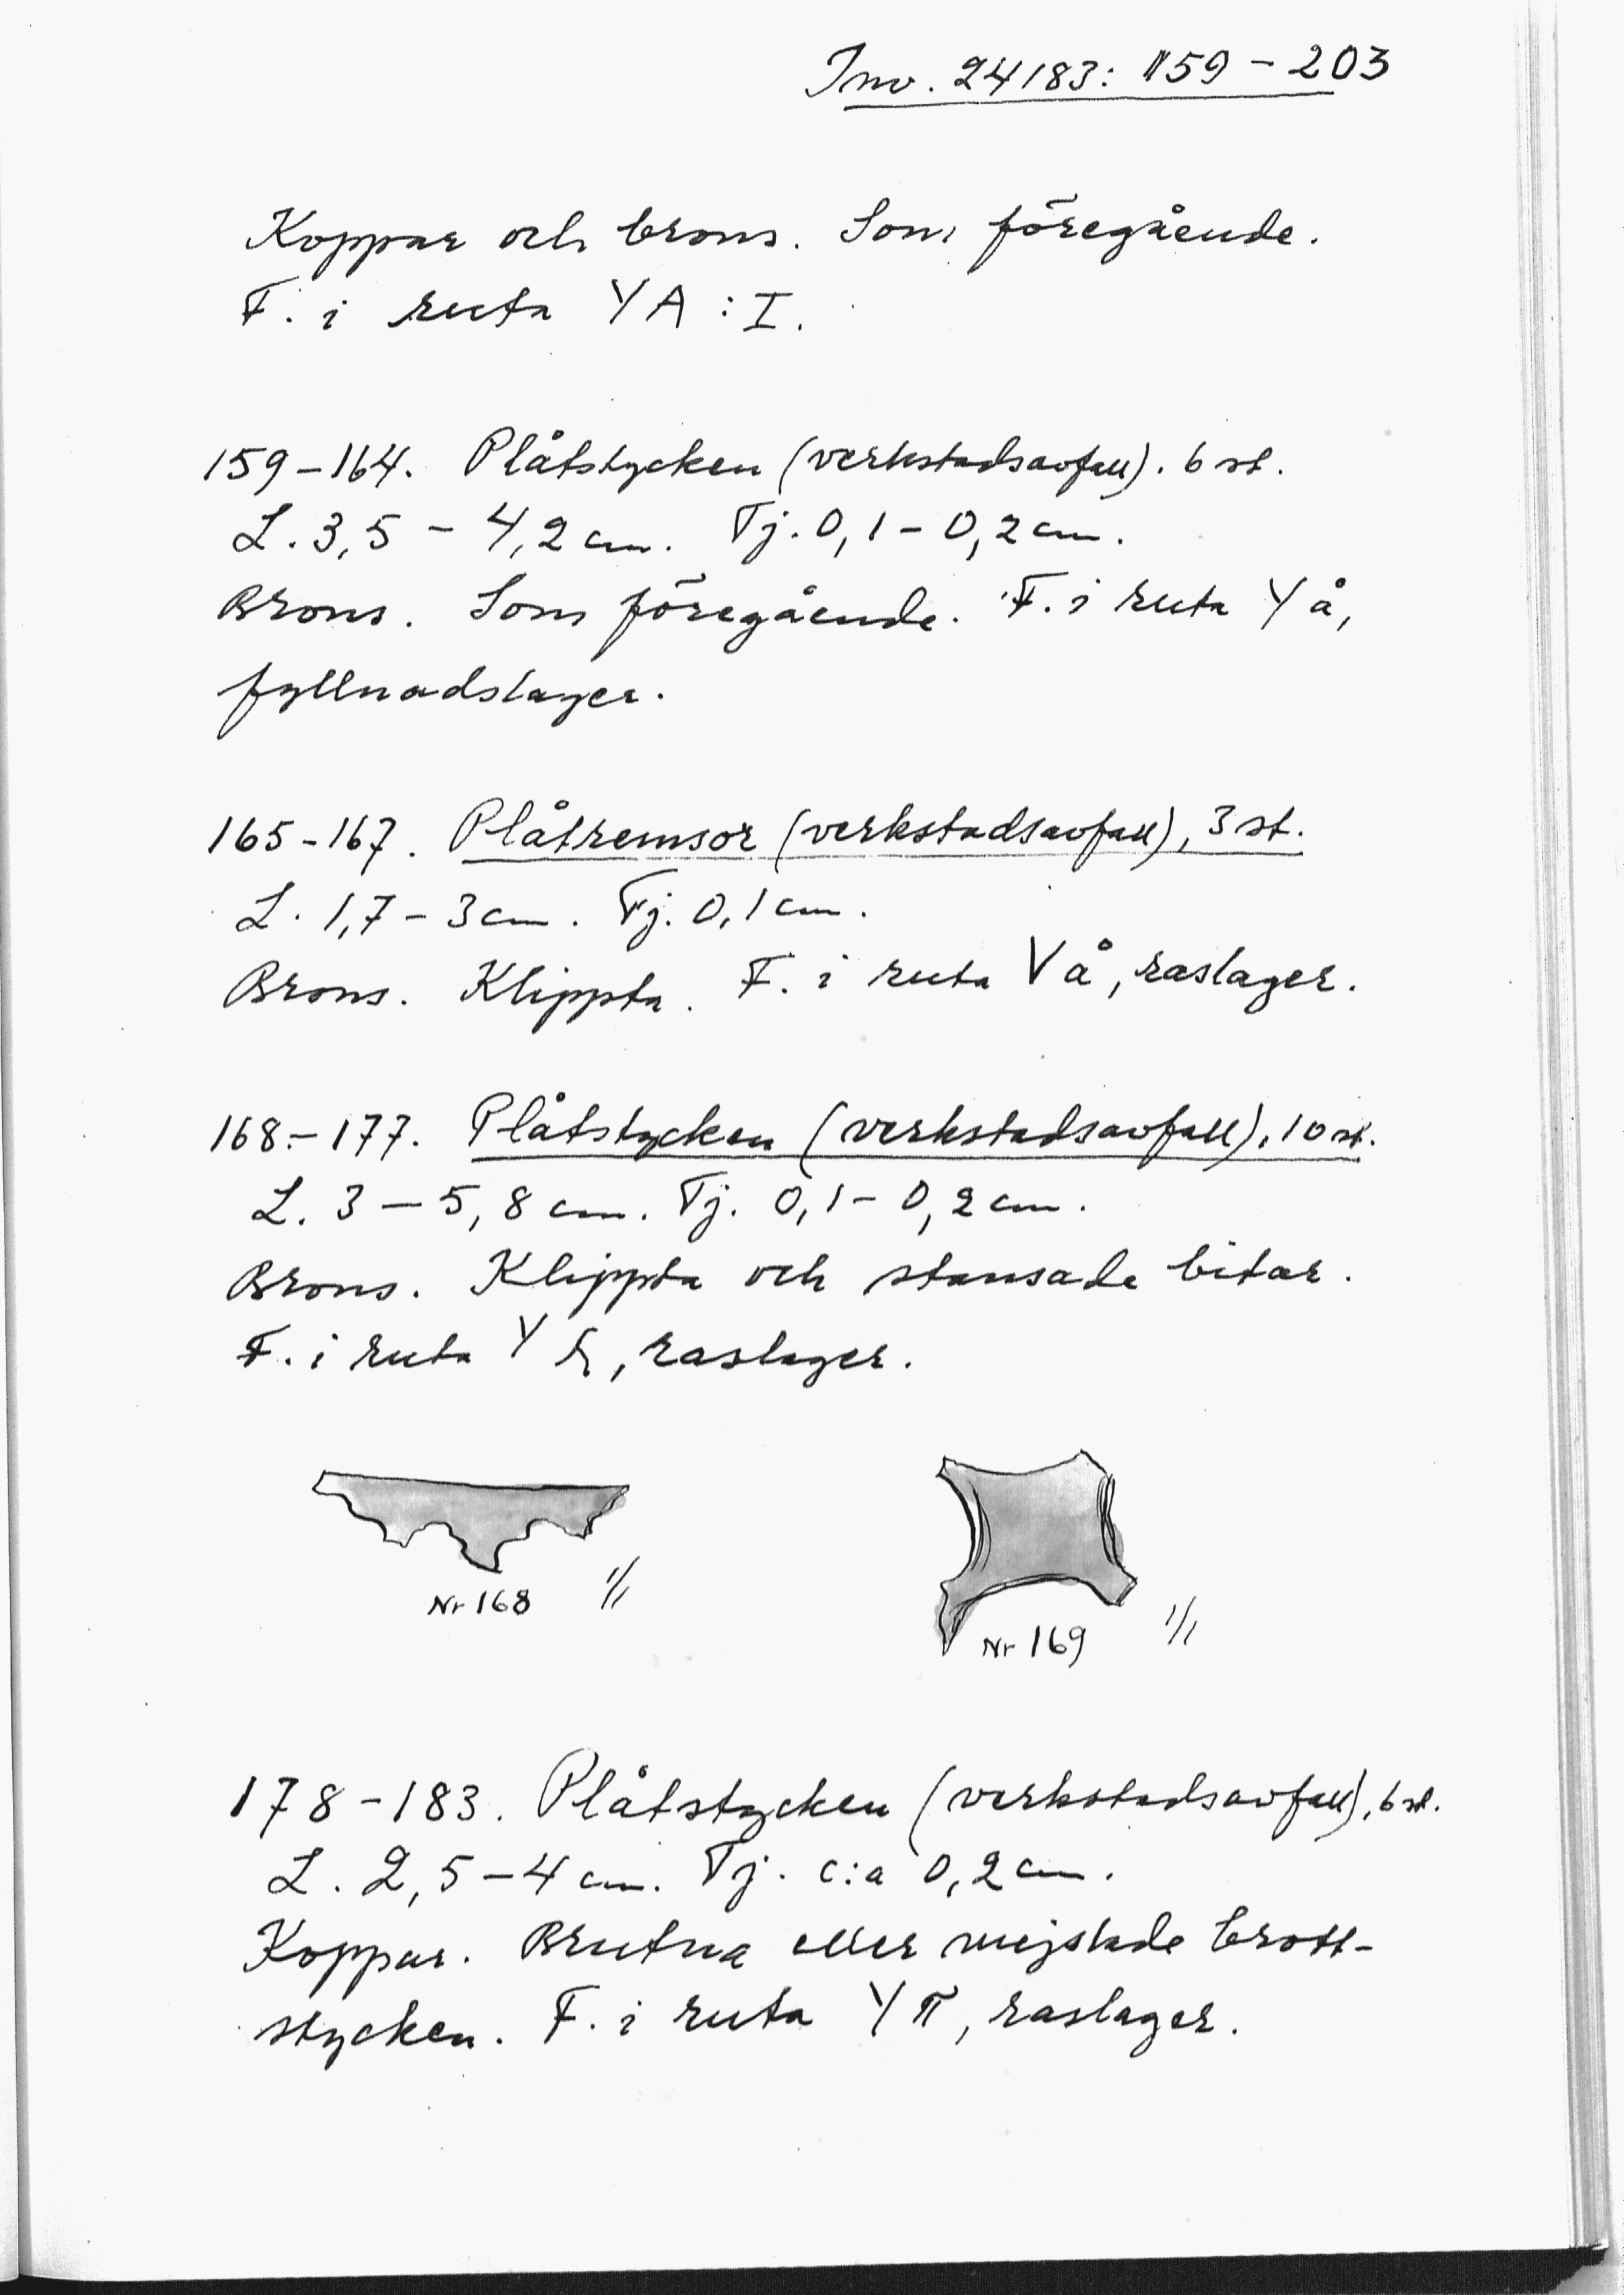 Inv. 24183: 159 – 203
Koppar och brons. Som föregående.
F. i ruta YA : I.
159 – 164. Plåtstycken (verkstadsavfall). 6 st.
L. 3,5 – 4,2 cm. Tj. 0,1 – 0,2 cm.
Brons. Som föregående. F. i ruta Y å,
fyllnadslager.
165 - 167. Plåtremsor (verkstadsavfall), 3 st.
L. 1,7 – 3 cm. Tj. 0,1 cm.
Brons. Klippta. F. i ruta V å, raslager.
168 – 177. Plåtstycken (verkstadsavfall), 10 st.
L. 3 – 5,8 cm. Tj. 0,1 – 0,2 cm.
Brons. Klippta och stansade bitar.
F. i ruta Y , raslager.
Nr 168 1/1
Nr 169 1/1
178 - 183. Plåtstycken (verkstadsavfall), 6 st.
L. 2,5 – 4 cm. Tj. c:a 0,2 cm.
Koppar. Brutna eller mejslade brott-
stycken. F. i ruta Y π, raslager.